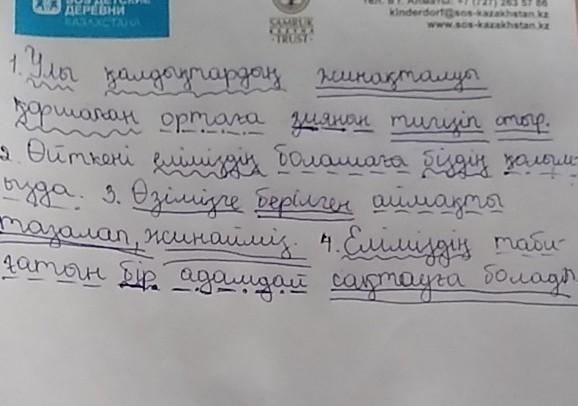 SOS ДЕТСКИЕ
ДЕРЕВНИ
КАЗАХСТАНА
SAMRUK
KAZYNA
TRUST
kinderdorf@sos-kazakhstan.kz
www.sos-kazakhstan.kz
1. Улы қалдықтардың жинақталуы
қоршаған ортаға зиянын тигізіп отыр.
2. Өйткені еліміздің болашаға біздің қолым-
ызда. 3. Өзімізге берілген аймақты
тазалап, жинаймыз. 4. Еліміздің таби-
ғатын бір адамдай сақтауға болады.